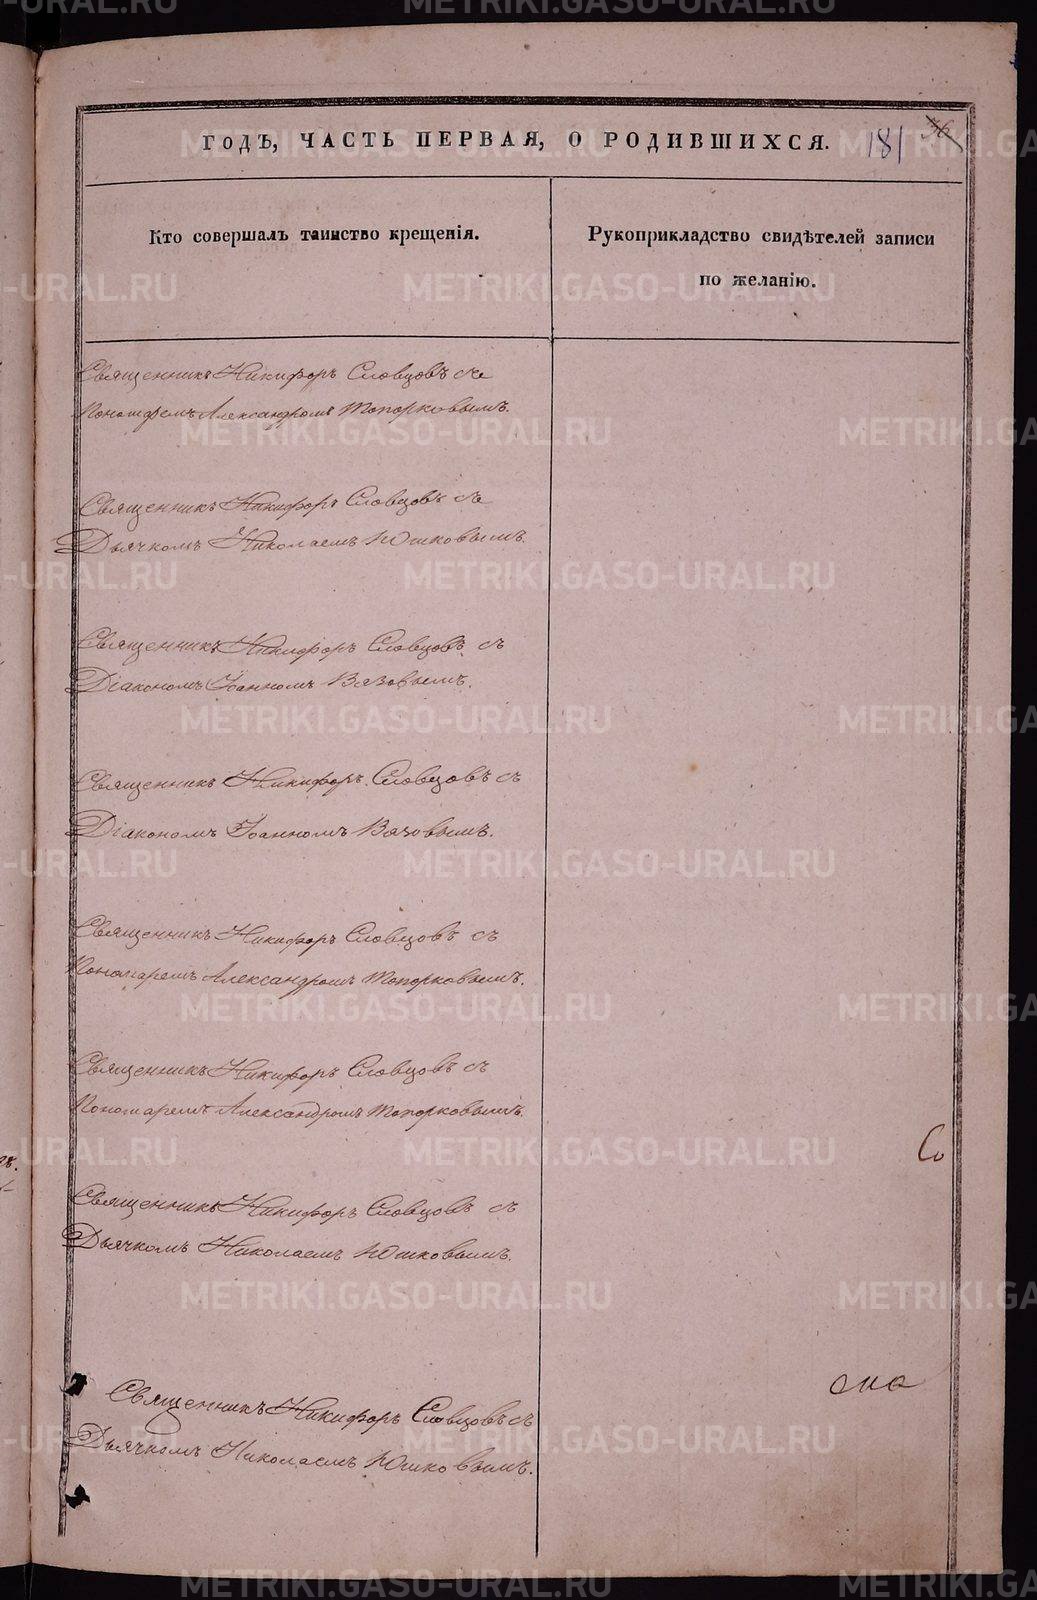 ГОДЪ, ЧАСТЬ ПЕРВАЯ, О РОДИВШИХСЯ. 181 36
Кто совершалъ таинство крещенія.
Рукоприкладство свидѣтелей записи
по желанію.
Священникъ Никифоръ Словцовъ съ
Пономаремъ Александромъ Топорковымъ.
Священникъ Никифоръ Словцовъ съ
Дьячкомъ Николаемъ Юшковымъ.
Священникъ Никифоръ Словцовъ съ
Діакономъ Іоанномъ Вязовымъ.
Священникъ Никифоръ Словцовъ съ
Діакономъ Іоанномъ Вязовымъ.
Священникъ Никифоръ Словцовъ съ
Пономаремъ Александромъ Топорковымъ.
Священникъ Никифоръ Словцовъ съ
Пономаремъ Александромъ Топорковымъ.
Со
Священникъ Никифоръ Словцовъ съ
Дьячкомъ Николаемъ Юшковымъ.
Священникъ Никифоръ Словцовъ съ
Дьячкомъ Николаемъ Юшковымъ.
METRIKI.GASO-URAL.RU